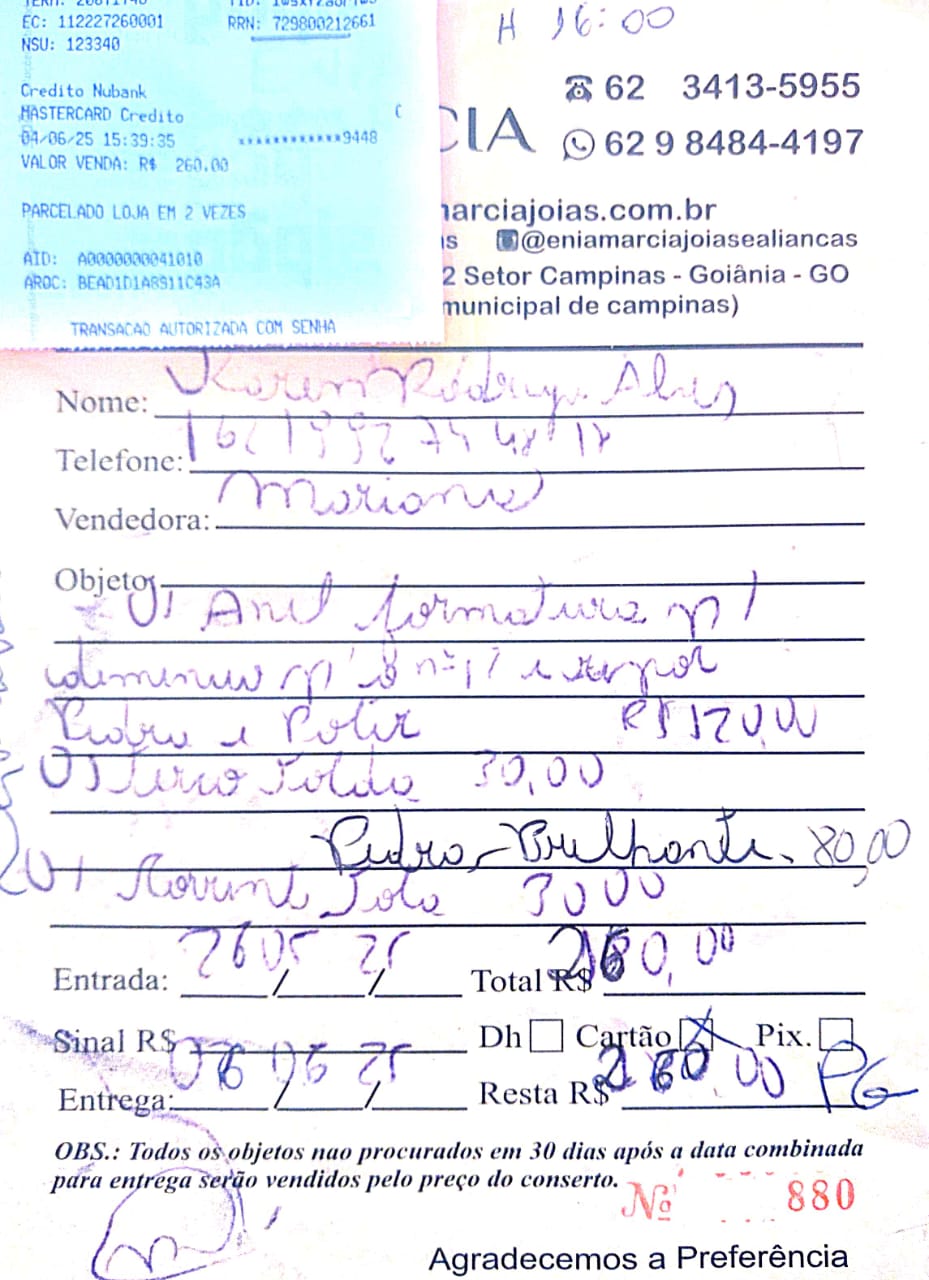 EC: 112227260001 RRN: 729800212661
NSU: 123340
Credito Nubank
MASTERCARD Credito C
04/06/25 15:39:35 ************9448
VALOR VENDA: R$ 260.00
PARCELADO LOJA EM 2 VEZES
AID: A0000000041010
ARQC: BEAD1D1A8911C43A
TRANSACAO AUTORIZADA COM SENHA
H 16:00
62 3413-5955
CIA 62 9 8484-4197
arciajoias.com.br
s @eniamarciajoiasealiancas
2 Setor Campinas - Goiânia - GO
municipal de campinas)
Nome: Karen Rodrigu Alves
Telefone:
Vendedora: Mariana
Objeto
01 Anel formatura p/
diminuir p/ nº 17 e repor
Pedra e Polir R$ 120,00
01 Terço Solda 30,00
Pedra - Brilhante. 80,00
01 Solda 30 00
Entrada: 26/05/25 Total R$ 260,00
Sinal R$ Dh Cartão X Pix.
Entrega: 06/06/25 Resta R$ 260,00 PG
OBS.: Todos os objetos nao procurados em 30 dias após a data combinada
para entrega serão vendidos pelo preço do conserto.
Nº 880
Agradecemos a Preferência